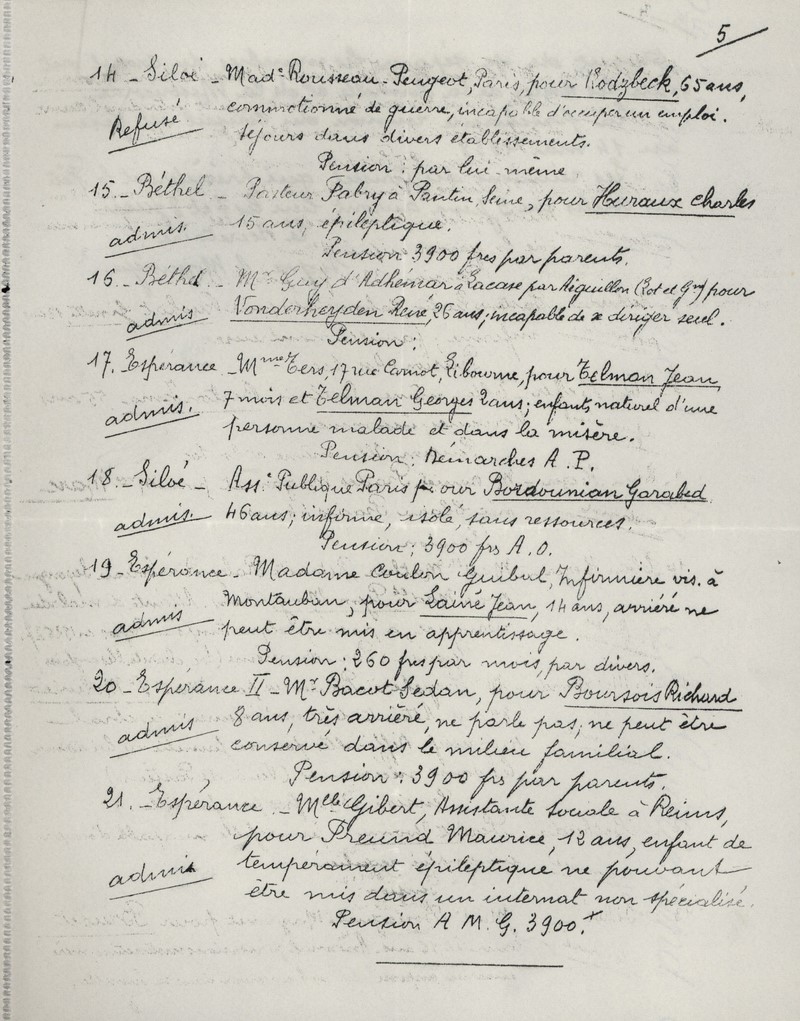 5
14 - Siloé - Made Rousseau-Peugeot, Paris, pour Kodzbeck, 65 ans,
Refusé
commotionné de guerre, incapable d'occuper un emploi.
Séjours dans divers établissements.
Pension : par lui-même
15. - Béthel - Pasteur Fabry à Pantin, Seine, pour Huraux Charles
admis.
15 ans, épileptique.
Pension 3900 frcs par parents.
16 - Béthel - Mr Guy d'Adhémar à Lacase par Aiguillon (Lot et Gne) pour
admis
Vonderheyden René, 26 ans; incapable de se diriger seul.
Pension :
17. Espérance - Mme Ters, 17 rue Carnot, Libourne, pour Telman Jean,
admis.
7 mois et Telman Georges 2 ans; enfants naturel d'une
personne malade et dans la misère.
Pension : Démarches A. P.
18. - Siloé - Asse Publique Paris pour Bozdounian Garabed
admis.
46 ans; infirme, isolé, sans ressources.
Pension ; 3900 frs A. O.
19 - Espérance - Madame Coulon Guibal, Infirmière vis. à
admis
Montauban, pour Lainé Jean, 14 ans, arriéré ne
peut être mis en apprentissage.
Pension : 260 frcs par mois, par divers.
20 - Espérance II - Mr Bacot Sedan, pour Boursois Richard
admis
8 ans, très arriéré, ne parle pas; ne peut être
conservé dans le milieu familial.
Pension : 3900 frs par parents.
21. - Espérance. - Melle Gibert, Assistante Sociale à Reims,
pour Freund Maurice, 12 ans, enfant de
admis
tempérament épileptique ne pouvant
être mis dans un internat non spécialisé.
Pension A M. G. 3900.